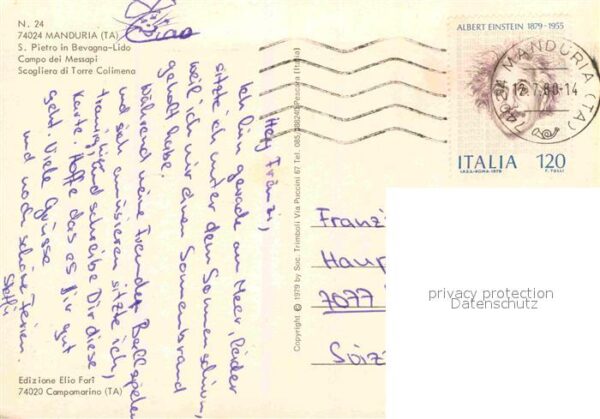 N. 24
74024 MANDURIA (TA)
S. Pietro in Bevagna-Lido
Campo dei Messapi
Scogliera di Torre Colimena
Ciao
Hey Fränzi,
Ich bin gerade am Meer, leider
sitzte ich unter dem Sonnenschirm,
weil ich mir einen Sonnenbrand
geholt habe.
Während meine Freunde Ball spielen
und sich amüsieren sitzte ich,
traurig und schreibe Dir diese
Karte. Hoffe das es Dir gut
geht. Viele Grüsse
und noch schöne Ferien.
Steffi
Edizione Elio Farì
74020 Campomarino (TA)
Copyright © 1979 by Soc. Trimboli Via Puccini 67 Tel. 085/388245 Pescara (Italia)
ALBERT EINSTEIN 1879-1955
ITALIA 120
I.P.Z.S.-ROMA-1979
F. TULLI
74024 MANDURIA (TA)
12.7.80-14
Franzi
Haup
7077
Spiz
privacy protection
Datenschutz